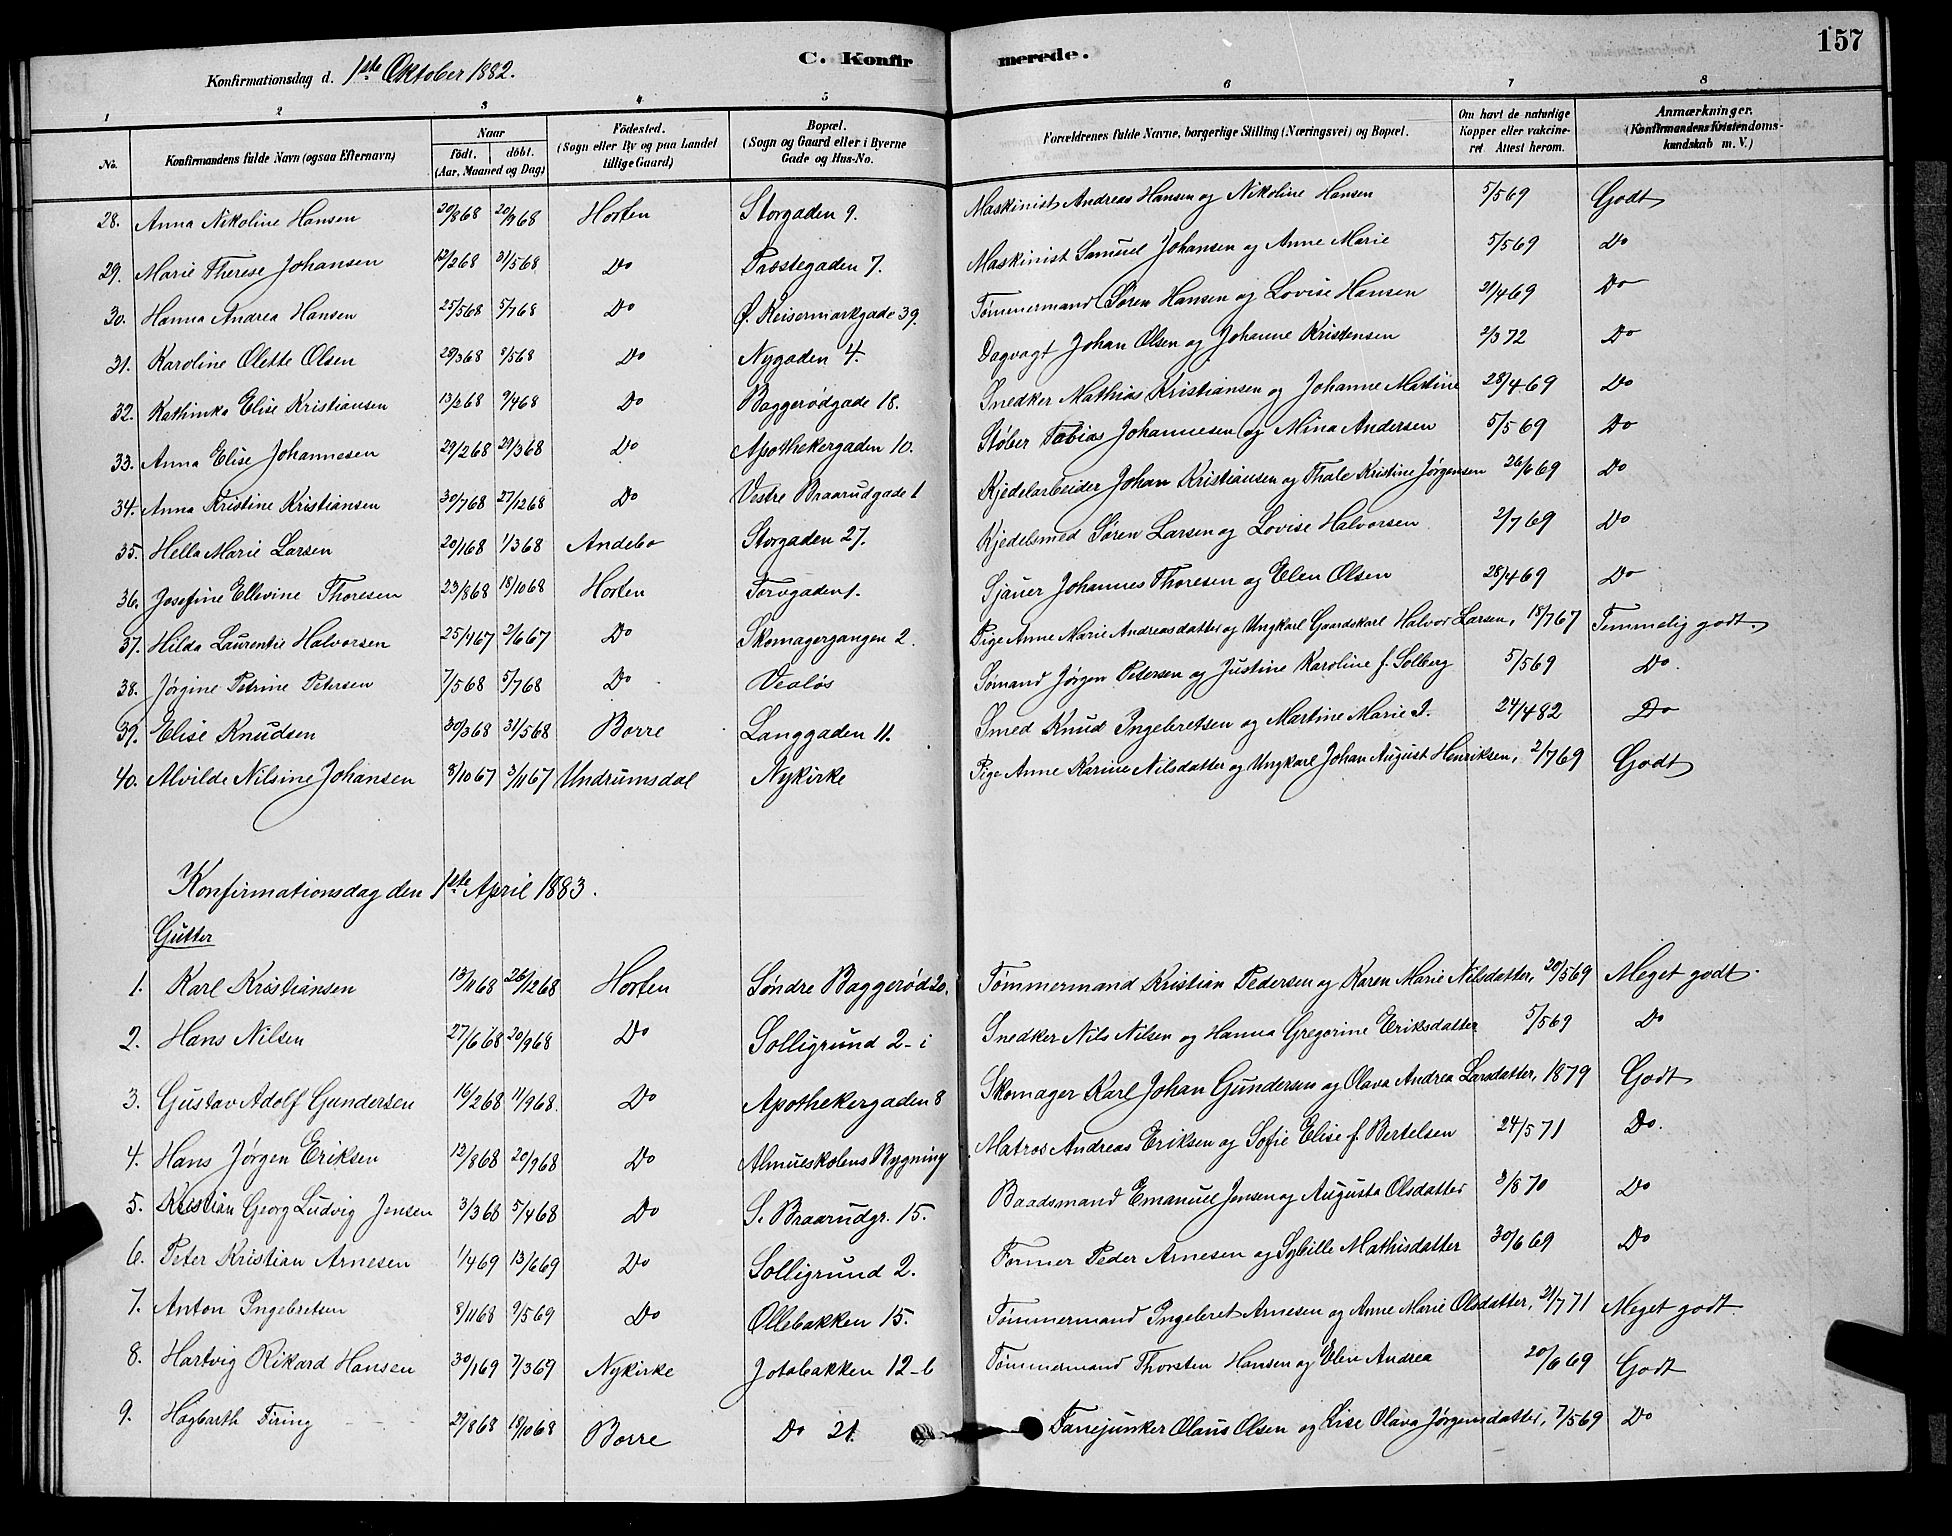 157
C. Konfirmerede.
Konfirmationsdag d. 1ste Oktober 1882.
1 2 3 4 5 6 7 8
No. Konfirmandens fulde Navn (ogsaa Efternavn) Naar Födt. döbt. (Aar, Maaned og Dag) Födested. (Sogn eller By og paa Landet tillige Gaard) Bopæl. (Sogn og Gaard eller i Byerne Gade og Hus-No. Forældrenes fulde Navne, borgerlige Stilling (Næringsvei) og Bopæl. Om havt de naturlige Kopper eller vakcineret. Attest herom. Anmærkninger. (Konfirmandens Kristendomskundskab m. V.)
28. Anna Nikoline Hansen 20/868 20/968 Horten Storgaden 9. Maskinist Andreas Hansen og Nikoline Hansen 5/569 Godt
29. Marie Therese Johansen 12/268 31/568 Do Præstegaden 7. Maskinist Samuel Johansen og Anne Marie 5/569 Do
30. Hanna Andrea Hansen 25/568 5/768 Do Ø. Keisermarkgade 39. Tømmermand Søren Hansen og Lovise Hansen 21/469 Do
31. Karoline Olette Olsen 29/368 /568 Do Nygaden 4. Dagvagt Johan Olsen og Johanne Kristensen 2/372 Do
32. Kathinka Elise Kristiansen 13/268 9/468 Do Baggerødgade 18. Snedker Mathias Kristiansen og Johanne Martine 28/469 Do
33. Anna Elise Johannesen 29/268 29/368 Do Apothekergaden 10. Støber Tobias Johannesen og Mina Andersen 5/569 Do
34. Anna Kristine Kristiansen 30/768 27/1268 Do Vestre Braarudgade 1 Kjedelarbeider Johan Kristiansen og Thale Kristine Jørgensen 26/669 Do
35. Hella Marie Larsen 20/168 1/368 Andebo Storgaden 27. Kjedelsmed Søren Larsen og Lovise Halvorsen 2/769 Do
36. Josefine Ellevine Thoresen 23/868 18/1068 Horten Torvgaden 1. Sjauer Johannes Thoresen og Elen Olsen 28/469 Do
37. Hilda Laurentie Halvorsen 25/467 2/667 Do Skomagergangen 2. Pige Anne Marie Andreasdatter og Ungkarl Gaardskarl Halvor Larsen, 18/767 Temmelig godt.
38. Jørgine Petrine Petersen 7/568 5/768 Do Vealøs Sømand Jørgen Petersen og Justine Karoline f. Solberg 5/569 Do.
39. Elise Knudsen 30/368 31/568 Borre Langgaden 11. Smed Knud Ingebretsen og Martine Marie I. 24/482 Do
40. Alvilde Nilsine Johansen 8/1067 3/1167 Undrumsdal Nykirke Pige Anne Karine Nilsdatter og Ungkarl Johan August Henriksen, 2/769 Godt
Konfirmationsdag den 1ste April 1883.
Gutter
1. Karl Kristiansen 13/1168 26/1268 Horten Søndre Baggerød 20. Tømmermand Kristian Pedersen og Karen Marie Nilsdatter, 20/569 Meget godt.
2. Hans Nilsen 27/668 20/968 Do Solligrund 2-i Snedker Nils Nilsen og Hanna Gregorine Eriksdatter 5/569 Do
3. Gustav Adolf Gundersen 16/268 11/968. Do Apothekergaden 8 Skomager Karl Johan Gundersen og Olava Andrea Larsdatter, 1879 Godt
4. Hans Jørgen Eriksen 12/868 20/968 Do Almueskolens Bygning Matros Andreas Eriksen og Sofie Elise f. Bertelsen 24/571 Do.
5. Kristian Georg Ludvig Jensen 3/368 5/468 Do S. Braarudgr. 15. Baadsmand Emanuel Jensen og Augusta Olsdatter 3/870 Do
6. Peter Kristian Arnesen 1/469 13/669 Do Solligrund 2. Former Peder Arnesen og Sybille Mathisdatter 30/669 Do
7. Anton Ingebretsen 8/1168 9/569 Do Ollebakken 15. Tømmermand Ingebret Arnesen og Anne Marie Olsdatter, 21/771 Meget godt.
8. Hartvig Rikard Hansen 30/169 7/369 Nykirke Jotabakken 12-b Tømmermand Thorsten Hansen og Elin Andrea 20/669 Godt
9. Hagbarth Firing 29/868 18/1068 Borre Do 21. Fanejunker Olaus Olsen og Lise Olava Jørgensdatter, 7/569 Do